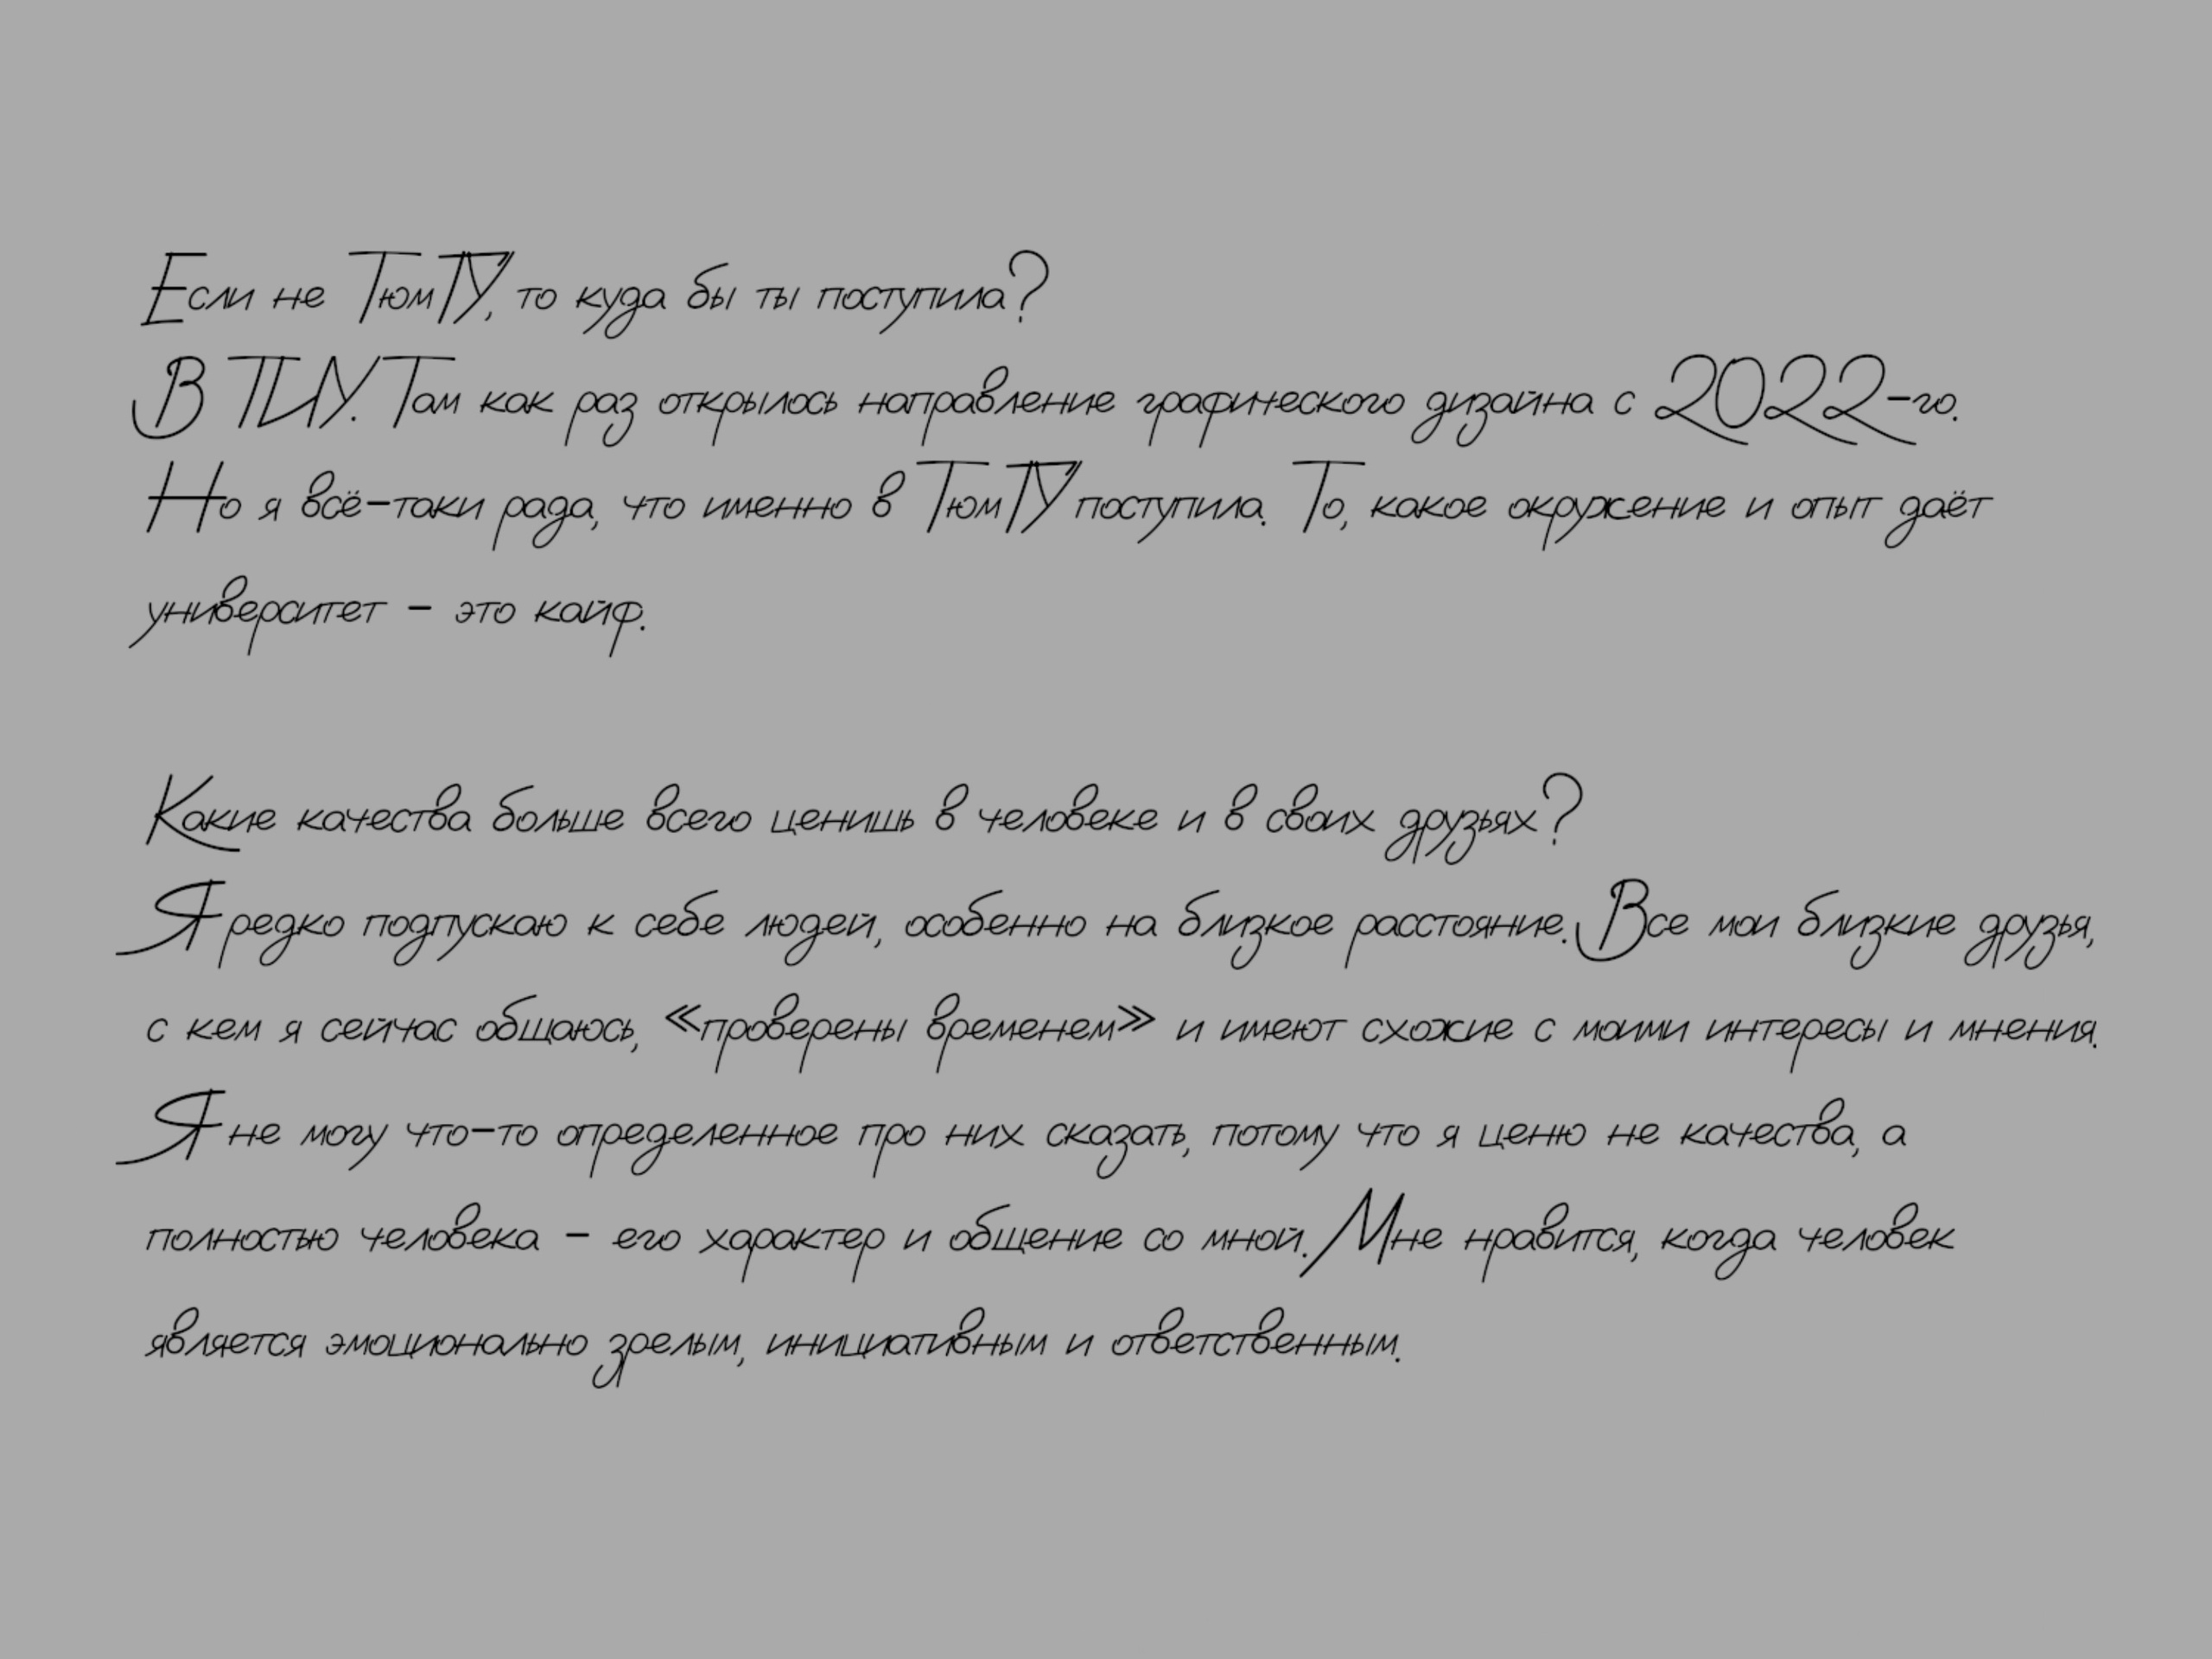 Если не ТюмГУ, то куда бы ты поступила?
В ТИУ. Там как раз открылось направление графического дизайна с 2022-го.
Но я всё-таки рада, что именно в ТюмГУ поступила. То, какое окружение и опыт даёт
университет – это кайф.
Какие качества больше всего ценишь в человеке и в своих друзьях?
Я редко подпускаю к себе людей, особенно на близкое расстояние. Все мои близкие друзья,
с кем я сейчас общаюсь, «проверены временем» и имеют схожие с моими интересы и мнения.
Я не могу что-то определенное про них сказать, потому что я ценю не качества, а
полностью человека – его характер и общение со мной. Мне нравится, когда человек
является эмоционально зрелым, инициативным и ответственным.